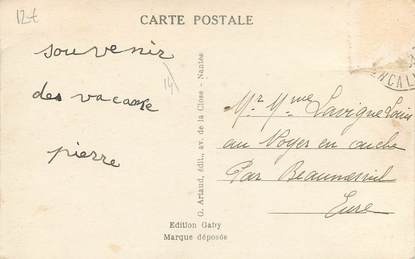 12t
CARTE POSTALE
souvenir
des vacance
pierre
G. Artaud, édit., av. de la Close - Nantes
Mr Mme Lavigne Louis
au Noyer en ouche
Par Beaumesnil
Eure
Edition Gaby
Marque déposée